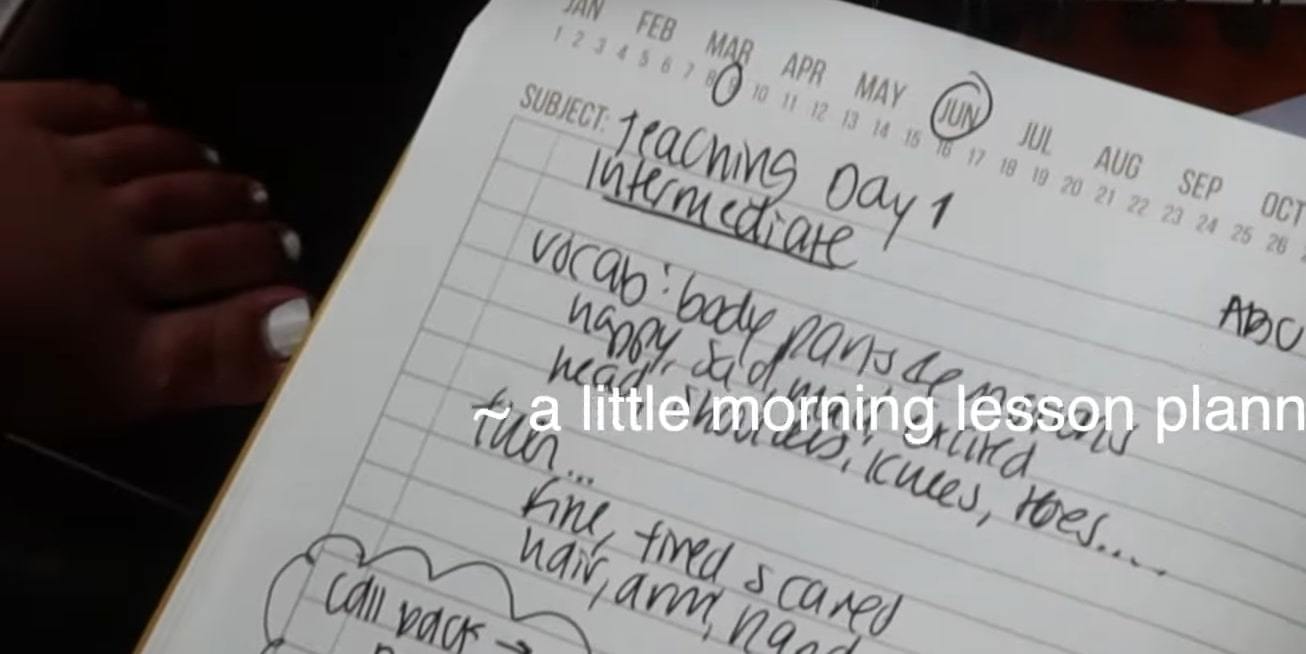 JAN FEB MAR APR MAY JUN JUL AUG SEP OCT
1 2 3 4 5 6 7 8 9 10 11 12 13 14 15 16 17 18 19 20 21 22 23 24 25 26
SUBJECT: Teaching Day 1
Intermediate
ABC
vocab: body parts & emotions
happy, sad, mad, excited
head, shoulders, knees, toes....
~ a little morning lesson plann
fun...
fine, tired scared
hair, arm, hand
call back →